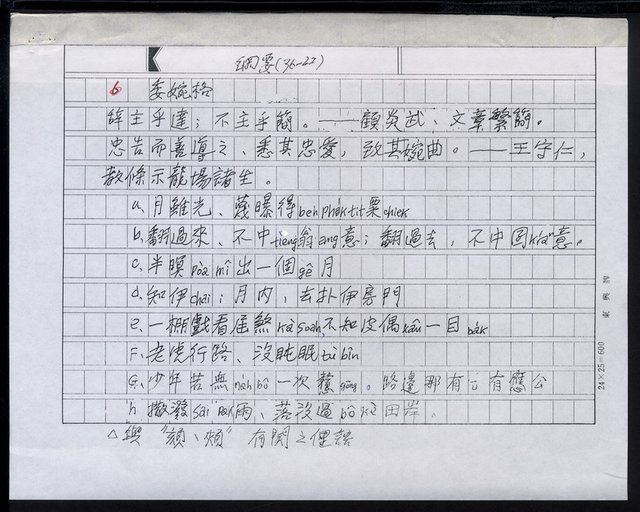 綱要(36-22)
6 委婉格
辭主乎達；不主乎簡。——顧炎武、文章繁簡。
忠告而善導之、悉其忠愛，致其婉曲。——王守仁，
教條示龍場諸生。
a、月雖光、曝得 粟chiek
b、翻過來、不中tiòng翁ang意；翻過去，不中囝kiáⁿ意。
c、半暝pòa mî出一個gê月
d、知伊chai；月內，去扑伊房門
e、一棚戲看屆煞kà soah不知皮偶 一目bák
F、老虎行路、沒盹眠tù bîn
G、少年若無nāh bô一次 gōng。路邊那有 有應公
h、撒潑sai 雨、落沒過bô kè田岸。
△與 有関之俚諺
24×25=600